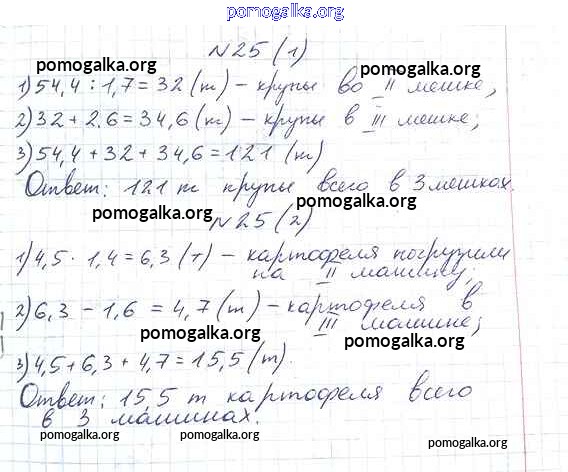 pomogalka.org
№25(1)
pomogalka.org pomogalka.org
1) 54,4 : 1,7 = 32 (т) – крупы во II мешке;
2) 32 + 2.6 = 34,6 (т) – крупы в III мешке;
3) 54,4 + 32 + 34,6 = 121 (т)
Ответ: 121 т крупы всего в 3 мешках.
pomogalka.org pomogalka.org
№25(2)
1) 4,5 · 1,4 = 6,3 (т) – картофеля погрузили
на II машину;
2) 6,3 – 1,6 = 4,7 (т) – картофеля в
III машине;
pomogalka.org pomogalka.org
3) 4,5 + 6,3 + 4,7 = 15,5 (т).
Ответ: 15,5 т картофеля всего
в 3 машинах.
pomogalka.org pomogalka.org pomogalka.org